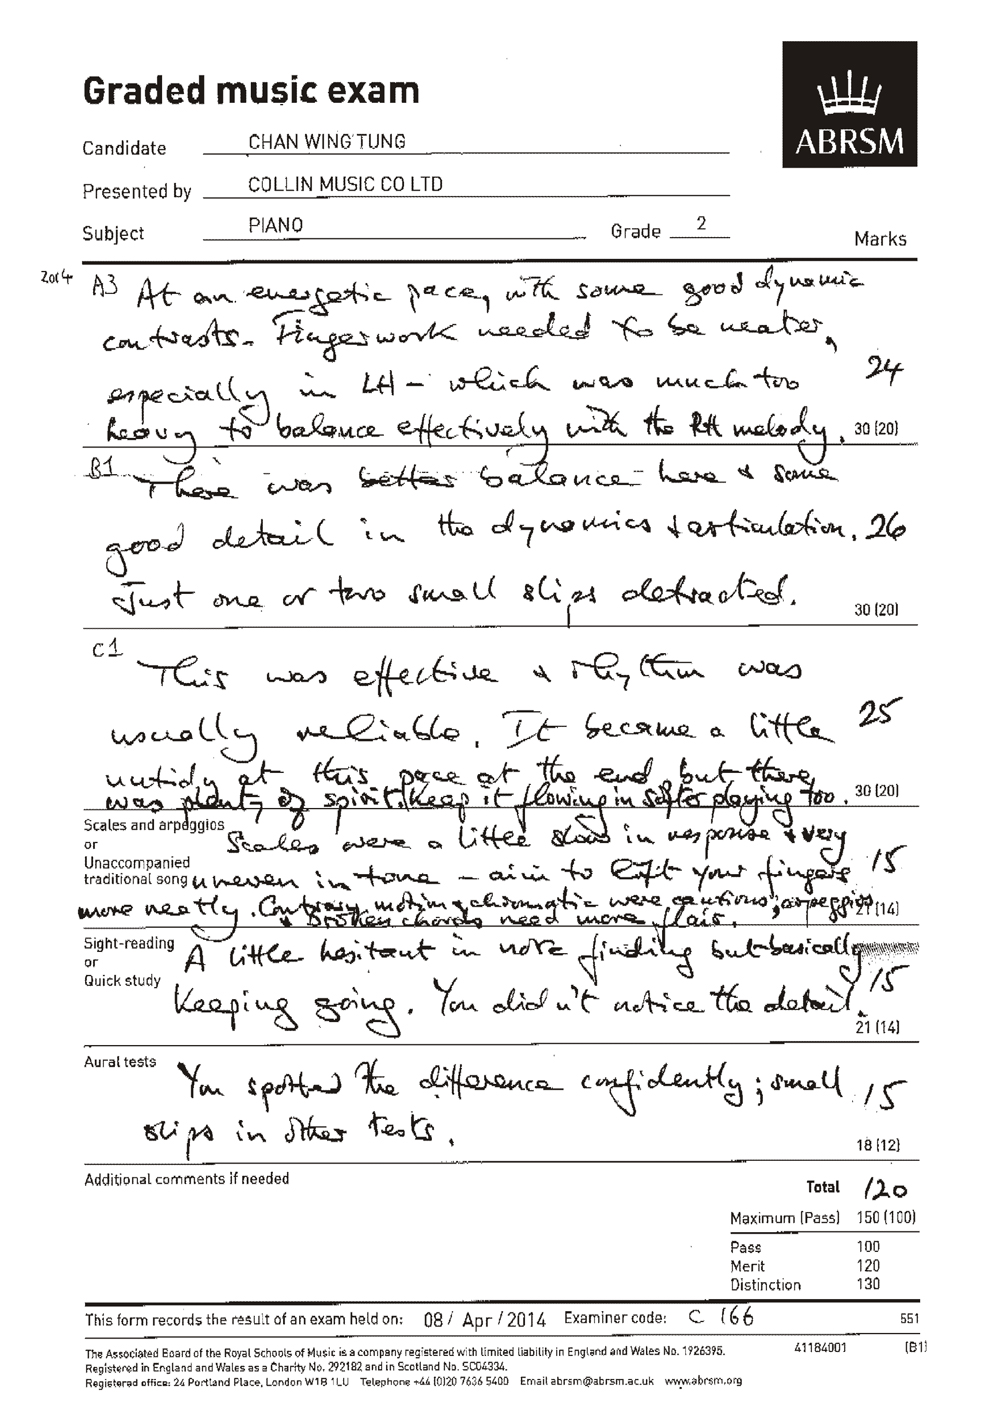 Graded music exam
ABRSM
Candidate CHAN WING TUNG
Presented by COLLIN MUSIC CO LTD
Subject PIANO Grade 2
Marks
2014 A3 At an energetic pace, with some good dynamic
contrasts. Fingerwork needed to be neater,
especially in LH - which was much too 24
heavy to balance effectively with the RH melody. 30 (20)
B1 There was better balance here & some
good detail in the dynamics & articulation. 26
Just one or two small slips detracted.
30 (20)
C1 This was effective & rhythm was
usually reliable. It became a little 25
untidy at this pace at the end, but there
was plenty of spirit. Keep it flowing in softer playing too. 30 (20)
Scales and arpeggios
or
Unaccompanied
traditional song
Scales were a little slow in response & very
uneven in tone - aim to lift your fingers 15
more neatly. Contrary motion & chromatic were cautious; arpeggios 21 (14)
& Broken chords need more flair.
Sight-reading
or
Quick study
A little hesitant in note finding but basically
Keeping going. You didn't notice the detail. 15
21 (14)
Aural tests
You spotted the difference confidently; small 15
slips in other tests.
18 (12)
Additional comments if needed
Total 120
Maximum (Pass) 150 (100)
Pass 100
Merit 120
Distinction 130
This form records the result of an exam held on: 08 / Apr / 2014 Examiner code: C 166 551
The Associated Board of the Royal Schools of Music is a company registered with limited liability in England and Wales No. 1926395. 41184001 (B1)
Registered in England and Wales as a Charity No. 292182 and in Scotland No. SC04334.
Registered office: 24 Portland Place, London W1B 1LU Telephone +44 (0)20 7636 5400 Email abrsm@abrsm.ac.uk www.abrsm.org